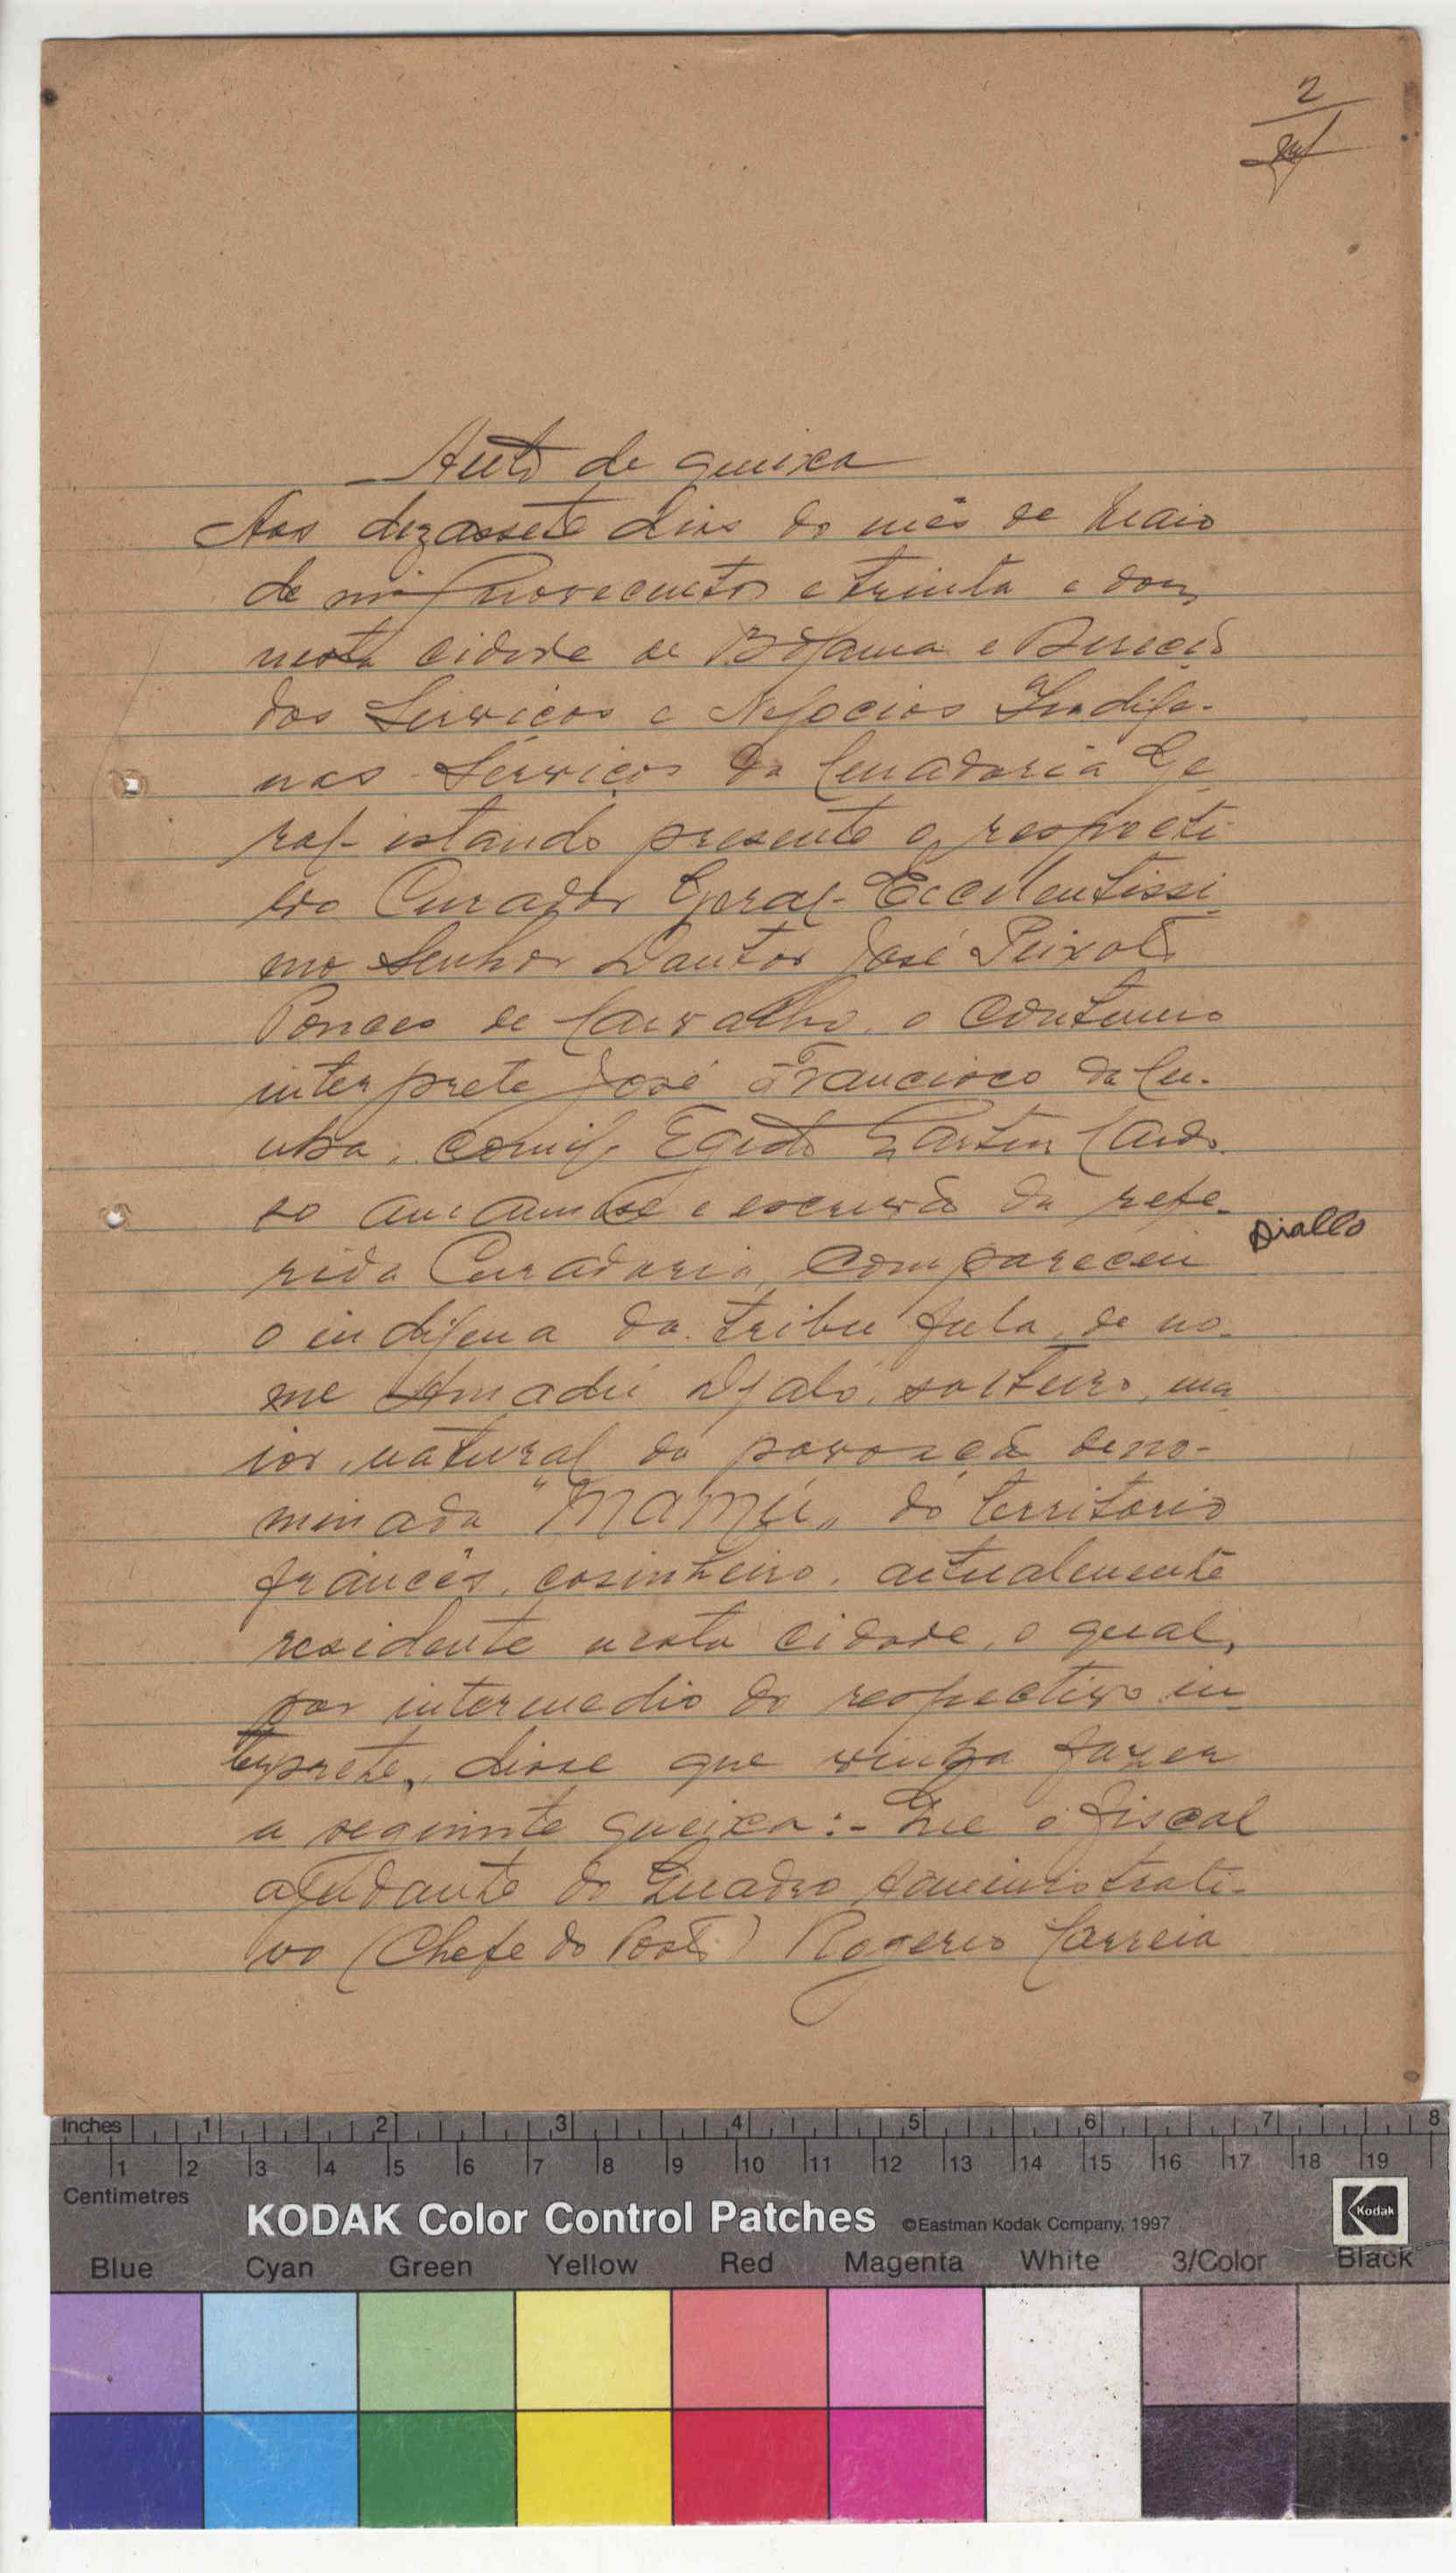 2
Auto de queixa
Aos dezassete dias do mês de Maio
de mil novecentos e trinta e dois
nesta cidade de Bolama e Direcção
dos Serviços e Negocios Indige-
nas - Serviços da Curadoria Ge
ral - estando presente o respecti-
vo Curador Geral - Excelentissi
mo Senhor Doutor José Peixoto
Ponces de Carvalho, o
interprete José Francisco da Cu-
nha, comigo Egidio Martins Cardo
so amanuense e escrivão da refe-
rida Curadoria, compareceu
Diallo
o indigena da tribu fula, de no-
me Amadú Djaló, solteiro, ma
ior, natural da povoação deno-
minada "Mamú" do territorio
francês, cosinheiro, actualmente
residente nesta cidade, o qual,
por intermedio do respectivo in
terprete, disse que vinha fazer
a seguinte queixa: - Que o fiscal
ajudante do Quadro Administrati-
vo (Chefe do Posto) Rogerio Correia
Inches 1 2 3 4 5 6 7 8
1 2 3 4 5 6 7 8 9 10 11 12 13 14 15 16 17 18 19
Centimetres
KODAK Color Control Patches ©Eastman Kodak Company, 1997
Kodak
Blue Cyan Green Yellow Red Magenta White 3/Color Black